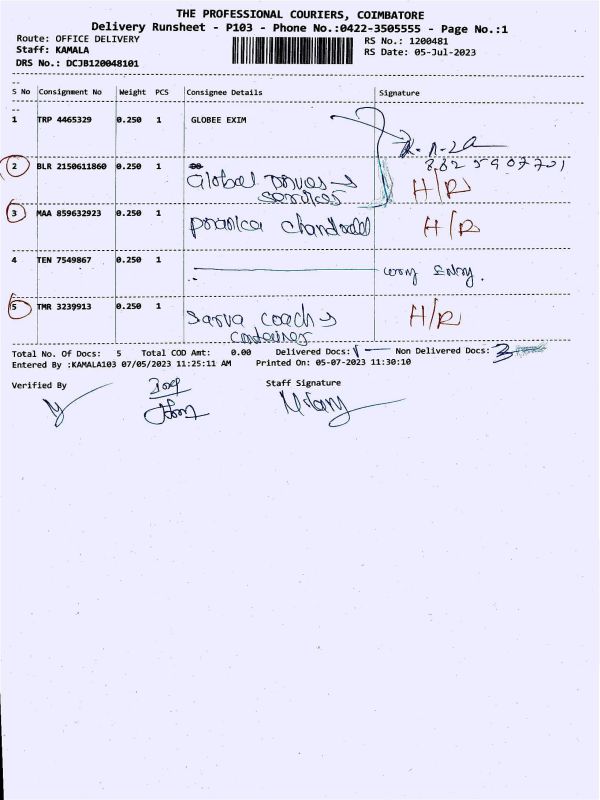 THE PROFESSIONAL COURIERS, COIMBATORE
Delivery Runsheet - P103 - Phone No.:0422-3505555 - Page No.:1
Route: OFFICE DELIVERY
RS No.: 1200481
Staff: KAMALA
RS Date: 05-Jul-2023
DRS No.: DCJB120048101
S No Consignment No Weight PCS Consignee Details Signature
1 TRP 4465329 0.250 1 GLOBEE EXIM
2 BLR 2150611860 0.250 1 Global H/R
services
3 MAA 859632923 0.250 1 H/R
4 TEN 7549867 0.250 1 Entry.
5 TMR 3239913 0.250 1 Sarva coach H/R
container
Total No. Of Docs: 5 Total COD Amt: 0.00 Delivered Docs: 1 Non Delivered Docs: 3
Entered By :KAMALA103 07/05/2023 11:25:11 AM Printed On: 05-07-2023 11:30:10
Verified By Staff Signature